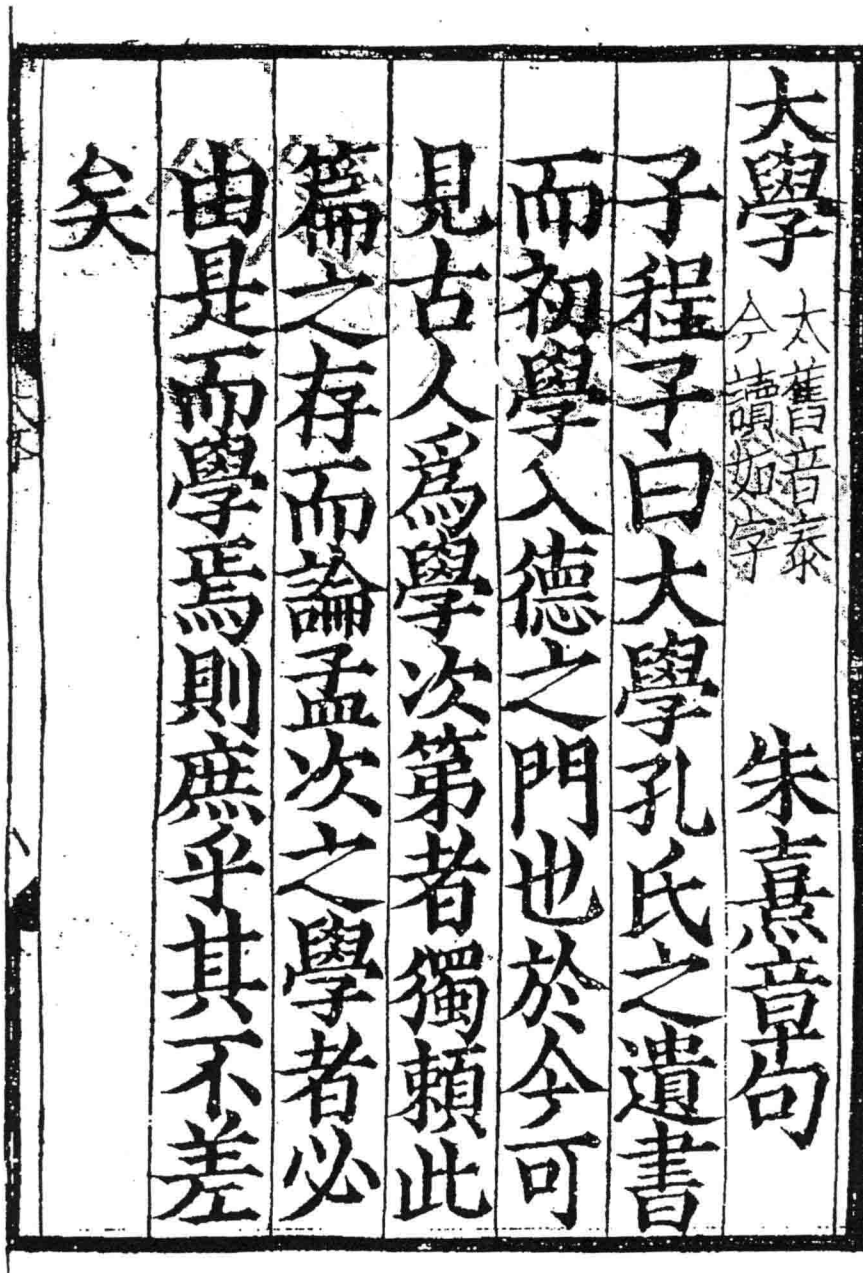 大學 太舊音泰今讀如字 朱熹章句
子程子曰大學孔氏之遺書
而初學入德之門也於今可
見古人爲學次第者獨賴此
篇之存而論孟次之學者必
由是而學焉則庶乎其不差
矣